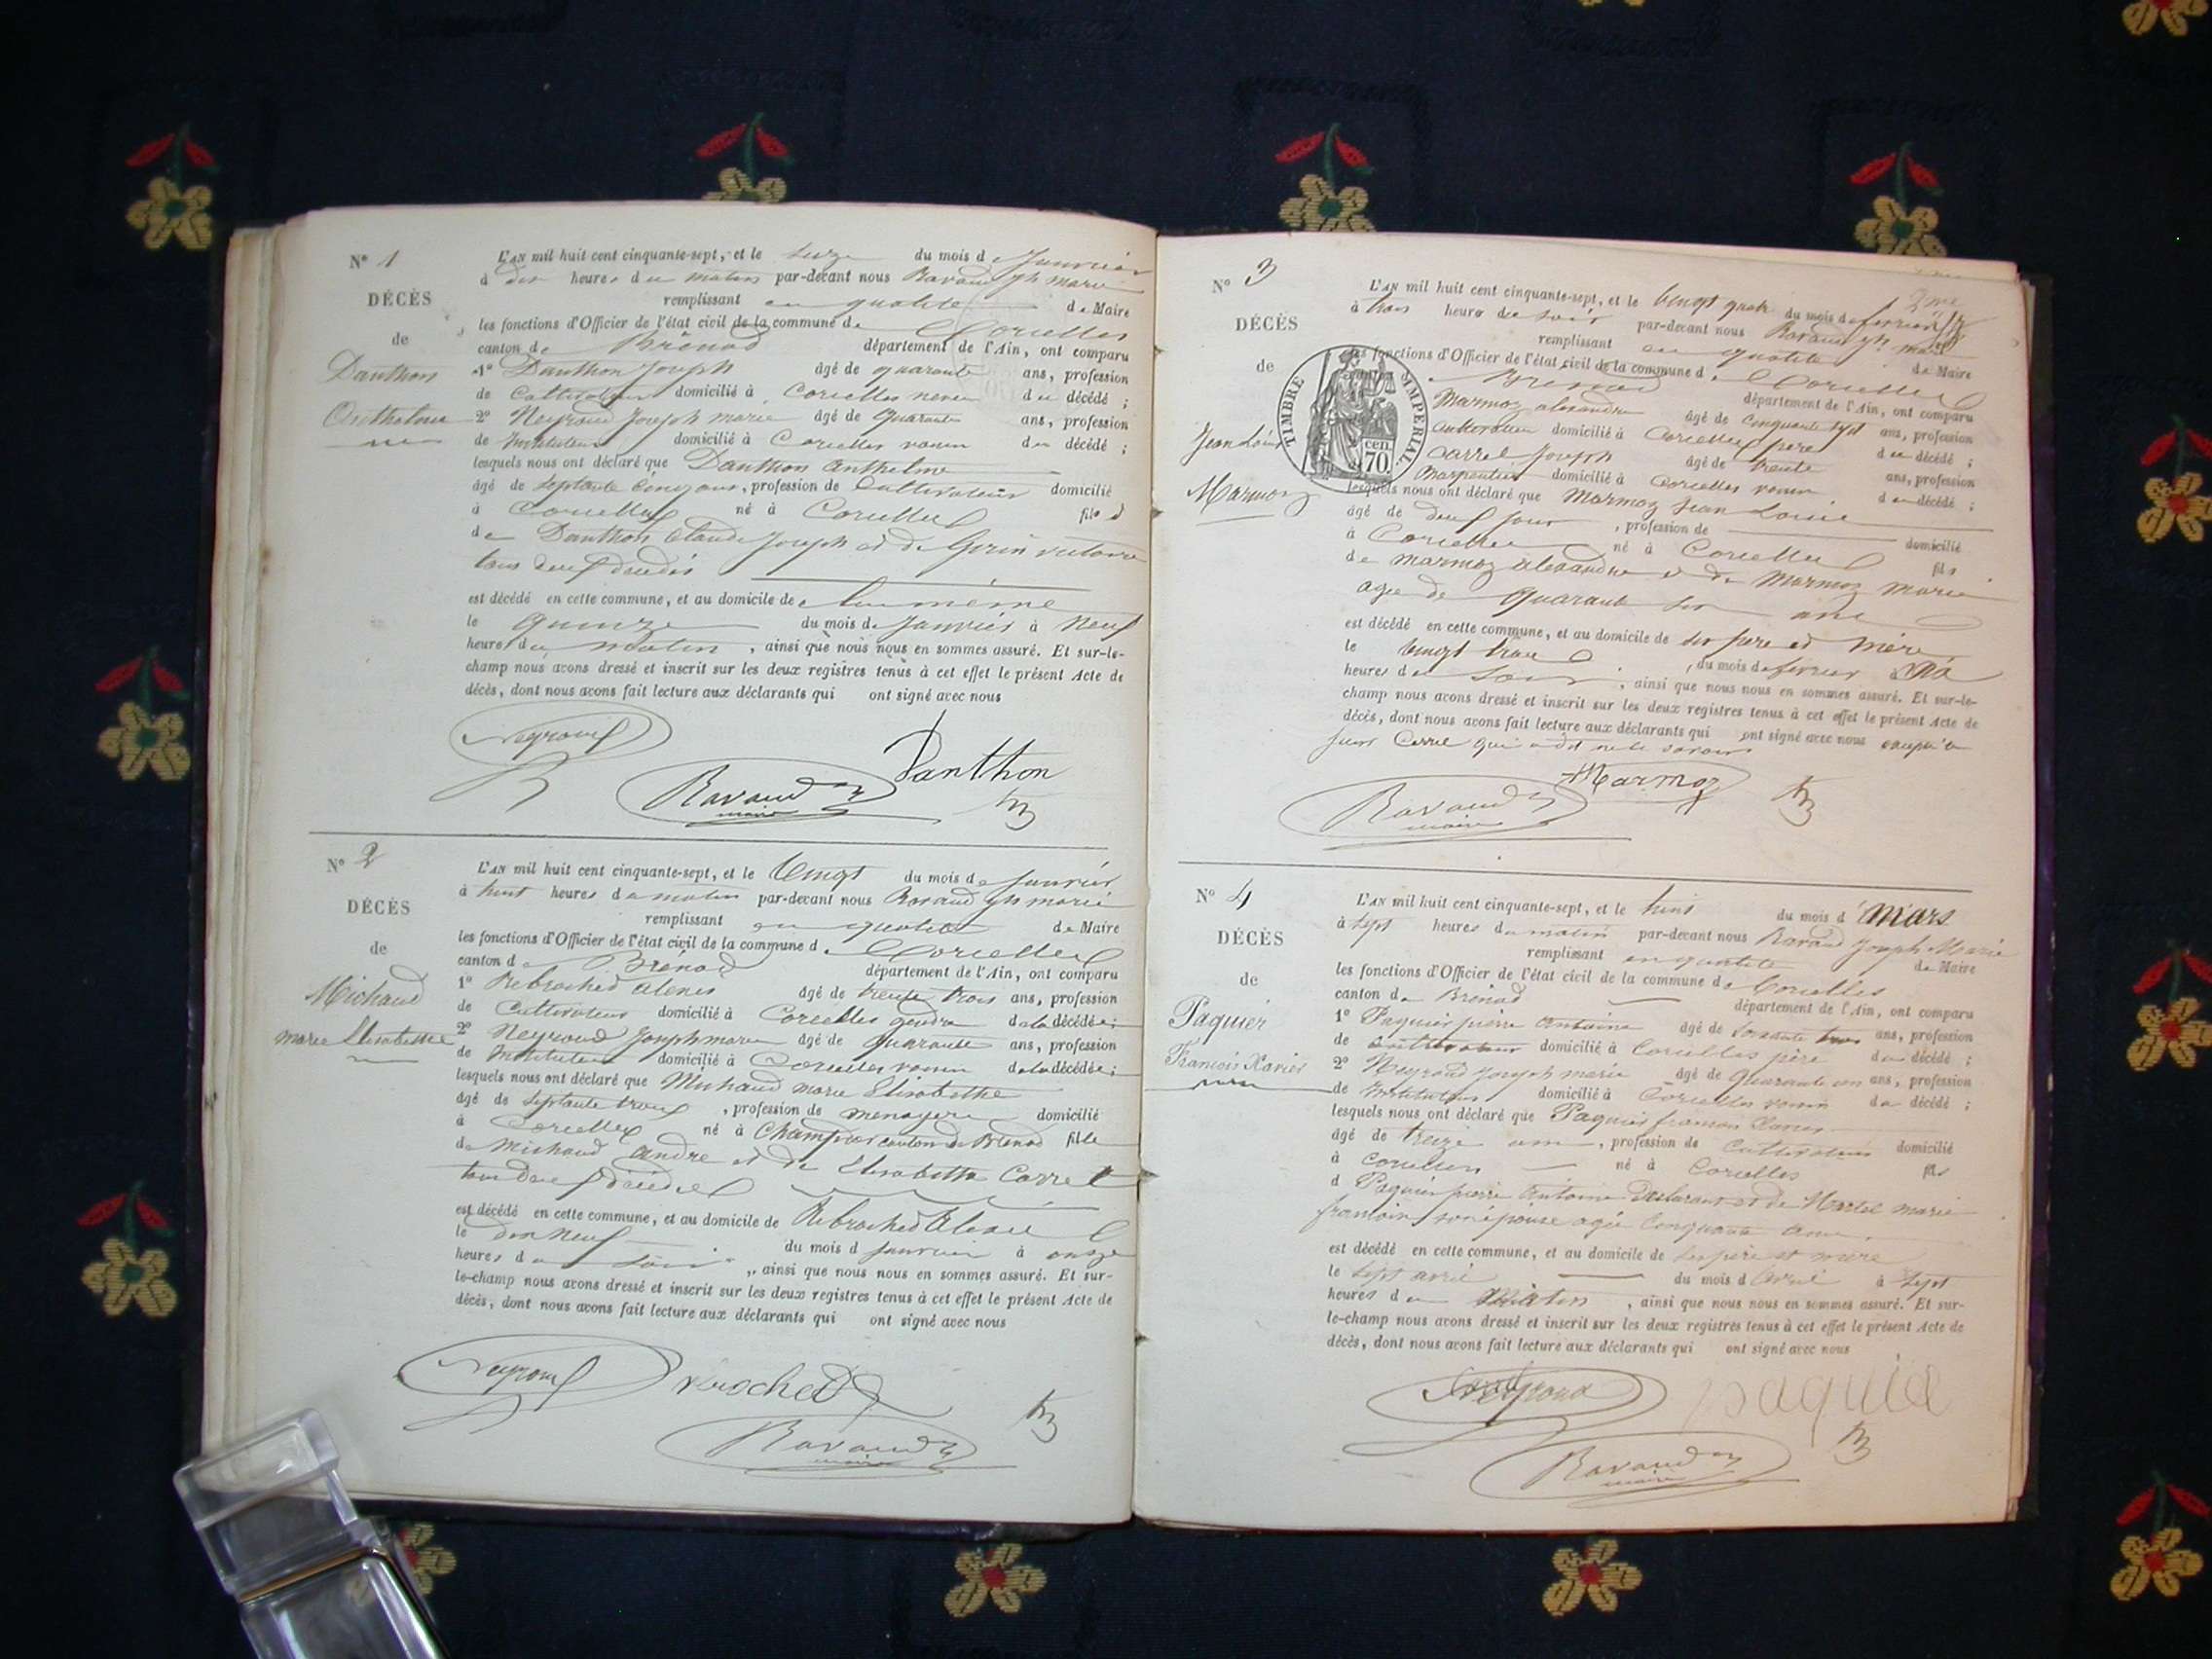 N° 1
DÉCÈS
de
Danthon
Anthelme
L'AN mil huit cent cinquante-sept, et le seize du mois de Janvier
à dix heures du matin par-devant nous Ravaud Jh marie
remplissant en qualité de Maire
les fonctions d'Officier de l'état civil de la commune de Corcelles
canton de Brénod département de l'Ain, ont comparu
1° Danthon Joseph âgé de quarante ans, profession
de Cultivateur domicilié à Corcelles neveu du décédé ;
2° Neyroud Joseph marie âgé de quarante ans, profession
de Instituteur domicilié à Corcelles voisin du décédé ;
lesquels nous ont déclaré que Danthon Anthelme
âgé de septante cinq ans, profession de Cultivateur domicilié
à Corcelles né à Corcelles fils
de Danthon Claude Joseph et de victoire
tous deux décédés
est décédé en cette commune, et au domicile de lui même
le quinze du mois de Janvier à neuf
heures du matin, ainsi que nous nous en sommes assuré. Et sur-le-
champ nous avons dressé et inscrit sur les deux registres tenus à cet effet le présent Acte de
décès, dont nous avons fait lecture aux déclarants qui ont signé avec nous
Neyroud
Danthon
Ravaud
maire
N° 2
DÉCÈS
de
Michaud
marie Elisabethe
L'AN mil huit cent cinquante-sept, et le vingt du mois de Janvier
à huit heures du matin par-devant nous Ravaud Jh marie
remplissant en qualité de Maire
les fonctions d'Officier de l'état civil de la commune d Corcelles
canton de Brénod département de l'Ain, ont comparu
1° Rebroched alexis âgé de trente trois ans, profession
de Cultivateur domicilié à Corcelles gendre de la décédée ;
2° Neyroud Joseph marie âgé de quarante ans, profession
de Instituteur domicilié à Corcelles voisin de la décédée ;
lesquels nous ont déclaré que Michaud marie Elisabethe
âgé de septante trois, profession de menagere domicilié
à Corcelles né à Champdor canton de Brenod fille
de Michaud andre et de Elisabetha Carrel
tous deux décédés
est décédé en cette commune, et au domicile de Rebroched Alexis
le dix neuf du mois d Janvier à onze
heures du soir, ainsi que nous nous en sommes assuré. Et sur-
le-champ nous avons dressé et inscrit sur les deux registres tenus à cet effet le présent Acte de
décès, dont nous avons fait lecture aux déclarants qui ont signé avec nous
Neyroud
Ravaud
maire
N° 3
DÉCÈS
de
Jean Louis
Marmoz
TIMBRE IMPERIAL
70 cen.
L'AN mil huit cent cinquante-sept, et le vingt quatre du mois de fevrier
à trois heures du soir par-devant nous Ravaud Jh marie
remplissant en qualité de Maire
les fonctions d'Officier de l'état civil de la commune d Corcelles
Brenod département de l'Ain, ont comparu
Marmoz alexandre âgé de cinquante sept ans, profession
cultivateur domicilié à Corcelles père du décédé ;
Carrel Joseph âgé de trente ans, profession
charpentier domicilié à Corcelles voisin du décédé ;
lesquels nous ont déclaré que Marmoz Jean Louis
âgé de deux jours, profession de domicilié
à Corcelles né à Corcelles fils
de marmoz alexandre et de Marmoz marie
agée de quarante six ans
est décédé en cette commune, et au domicile de ses pere et mère
le vingt trois du mois de fevrier à
heures du soir, ainsi que nous nous en sommes assuré. Et sur-le-
champ nous avons dressé et inscrit sur les deux registres tenus à cet effet le présent Acte de
décès, dont nous avons fait lecture aux déclarants qui ont signé avec nous
qui a dit ne le savoir
Marmoz
Ravaud
maire
N° 4
DÉCÈS
de
Paquier
Francois Xavier
L'AN mil huit cent cinquante-sept, et le huit du mois d Mars
à sept heures du matin par-devant nous Ravaud Joseph Marie
remplissant en qualité de Maire
les fonctions d'Officier de l'état civil de la commune de Corcelles
canton de Brénod département de l'Ain, ont comparu
1° Paquier pierre Antoine âgé de soixante trois ans, profession
de cultivateur domicilié à Corcelles père du décédé ;
2° Neyroud Joseph marie âgé de quarante un ans, profession
de Instituteur domicilié à Corcelles voisin du décédé ;
lesquels nous ont déclaré que Paquier francois Xavier
âgé de treize ans, profession de Cultivateur domicilié
à Corcelles né à Corcelles fils
d Paquier pierre Antoine Déclarant et de Martel marie
francoise son épouse agée cinquante ans
est décédé en cette commune, et au domicile de ses père et mere
le sept avril du mois d avril à sept
heures du Matin, ainsi que nous nous en sommes assuré. Et sur-
le-champ nous avons dressé et inscrit sur les deux registres tenus à cet effet le présent Acte de
décès, dont nous avons fait lecture aux déclarants qui ont signé avec nous
Neyroud
paquié
Ravaud
maire